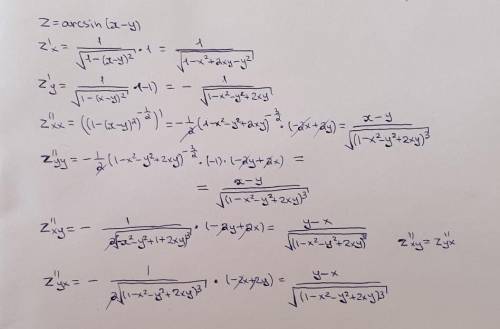 z = arcsin (x-y)
z'x = 1/√(1-(x-y)²) · 1 = 1/√(1-x²+2xy-y²)
z'y = 1/√(1-(x-y)²) · (-1) = - 1/√(1-x²-y²+2xy)
z''xx = ((1-(x-y)²)^(-1/2))' = -1/2 (1-x²-y²+2xy)^(-3/2) · (-2x+2y) = x-y/√((1-x²-y²+2xy)³)
z''yy = -1/2 (1-x²-y²+2xy)^(-3/2) · (-1) · (-2y+2x) =
= x-y/√((1-x²-y²+2xy)³)
z''xy = - 1/2√((-x²-y²+1+2xy)³) · (-2y+2x) = y-x/√((1-x²-y²+2xy)³) z''xy = z''yx
z''yx = - 1/2√((1-x²-y²+2xy)³) · (-2x+2y) = y-x/√((1-x²-y²+2xy)³)